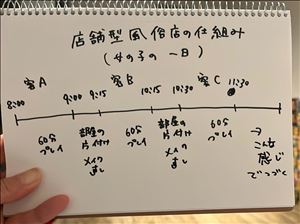 店舗型風俗店の仕組み
(女の子の一日)
客A 客B 客C
8:00 9:00 9:15 10:15 10:30 11:30
60分 プレイ
部屋の 片付け メイク 直し
60分 プレイ
部屋の 片付け メイク 直し
60分 プレイ
→ こんな 感じ でつづく